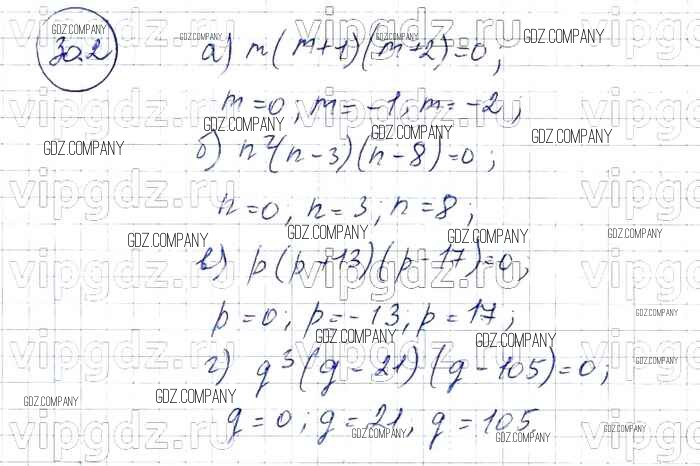 30.2 а) m(m+1)(m+2)=0;
m=0; m=-1; m=-2;
б) n²(n-3)(n-8)=0;
n=0; n=3; n=8;
в) p(p+13)(p-17)=0;
p=0; p=-13; p=17;
г) q³(q-21)(q-105)=0;
q=0; q=21, q=105.